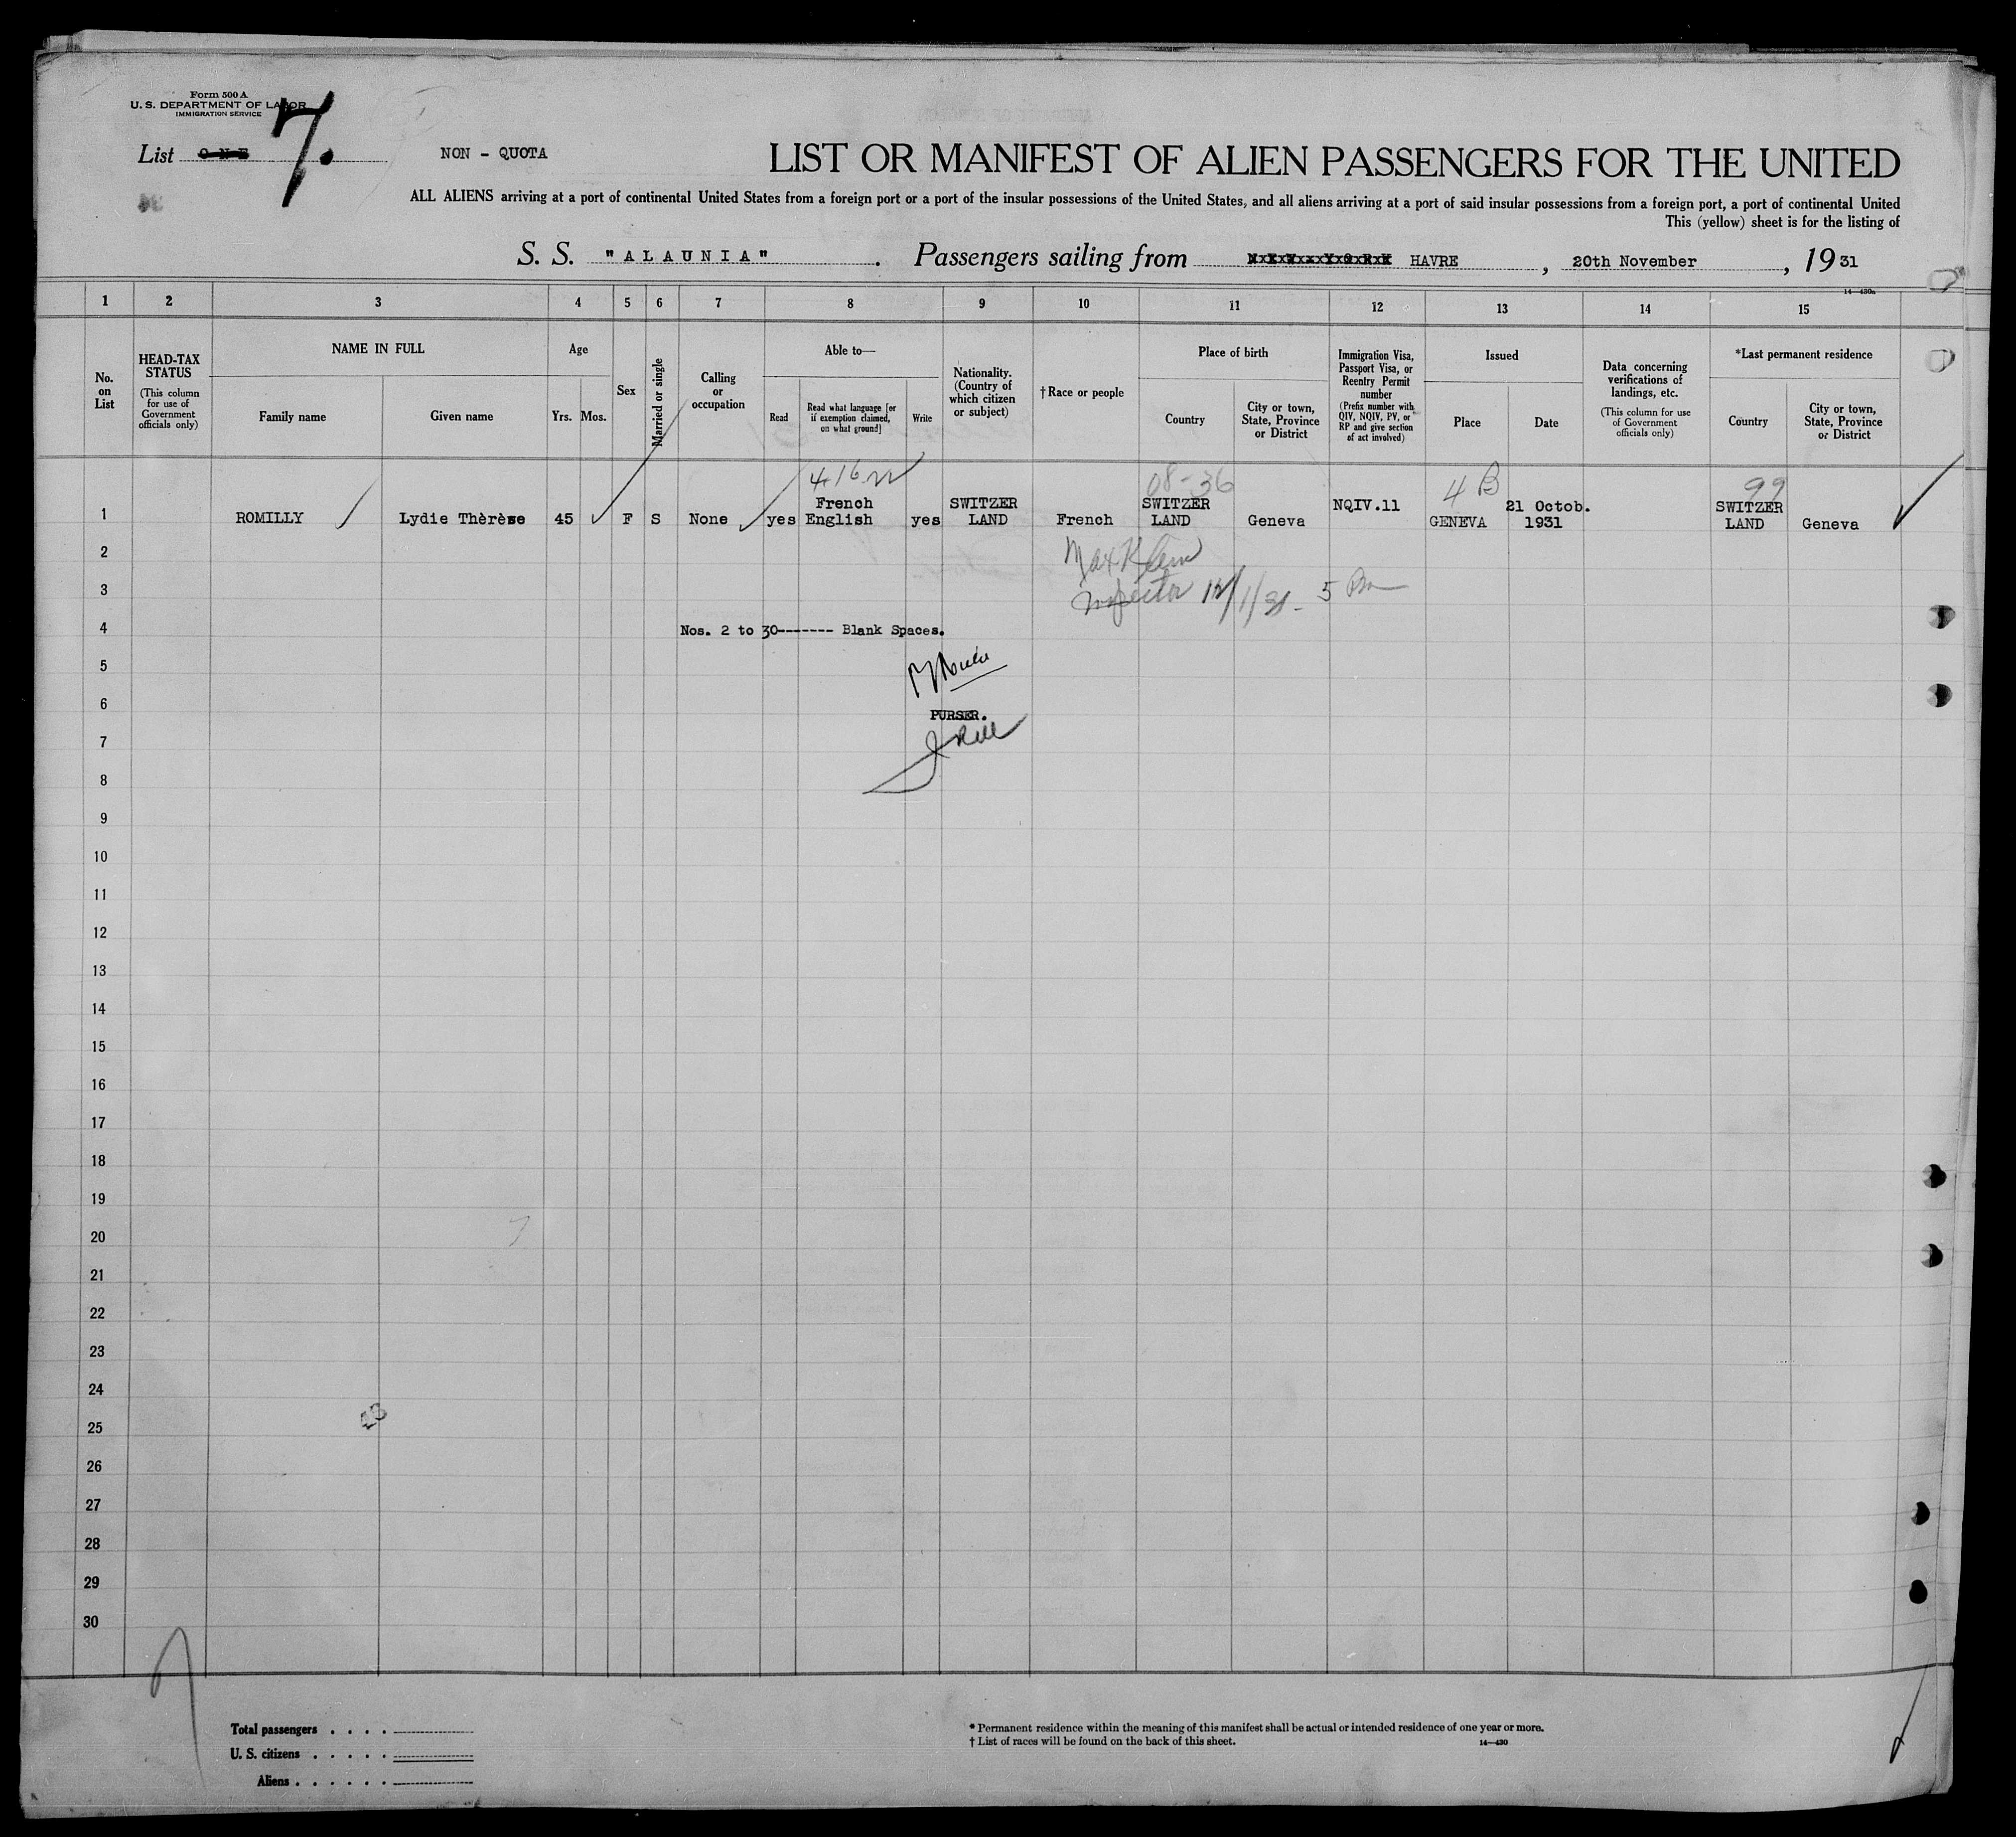 Form 500 A
U. S. DEPARTMENT OF LABOR
IMMIGRATION SERVICE
List O N E 7.
NON - QUOTA
LIST OR MANIFEST OF ALIEN PASSENGERS FOR THE UNITED
ALL ALIENS arriving at a port of continental United States from a foreign port or a port of the insular possessions of the United States, and all aliens arriving at a port of said insular possessions from a foreign port, a port of continental United
This (yellow) sheet is for the listing of
S. S. "ALAUNIA". Passengers sailing from NEW YORK HAVRE, 20th November, 1931
14—430a
1 2 3 4 5 6 7 8 9 10 11 12 13 14 15
No. on List
HEAD-TAX STATUS
(This column for use of Government officials only)
NAME IN FULL
Family name
Given name
Age
Yrs. Mos.
Sex
Married or single
Calling or occupation
Able to—
Read
Read what language [or if exemption claimed, on what ground]
Write
Nationality. (Country of which citizen or subject)
†Race or people
Place of birth
Country
City or town, State, Province or District
Immigration Visa, Passport Visa, or Reentry Permit number
(Prefix number with QIV, NQIV, PV, or RP and give section of act involved)
Issued
Place
Date
Data concerning verifications of landings, etc.
(This column for use of Government officials only)
*Last permanent residence
Country
City or town, State, Province or District
08-36
4 B
99
1 ROMILLY Lydie Thèrèse 45 F S None yes French English yes SWITZER LAND French SWITZER LAND Geneva NQIV.11 GENEVA 21 Octob. 1931 SWITZER LAND Geneva
2
Max Klein
3
Inspector 12/1/31 - 5 Pm
4
Nos. 2 to 30------- Blank Spaces.
5
6
PURSER.
7
8
9
10
11
12
13
14
15
16
17
18
19
20
21
22
23
24
25
26
27
28
29
30
Total passengers . . . .
U. S. citizens . . . . .
Aliens . . . . . .
* Permanent residence within the meaning of this manifest shall be actual or intended residence of one year or more.
† List of races will be found on the back of this sheet.
14—430